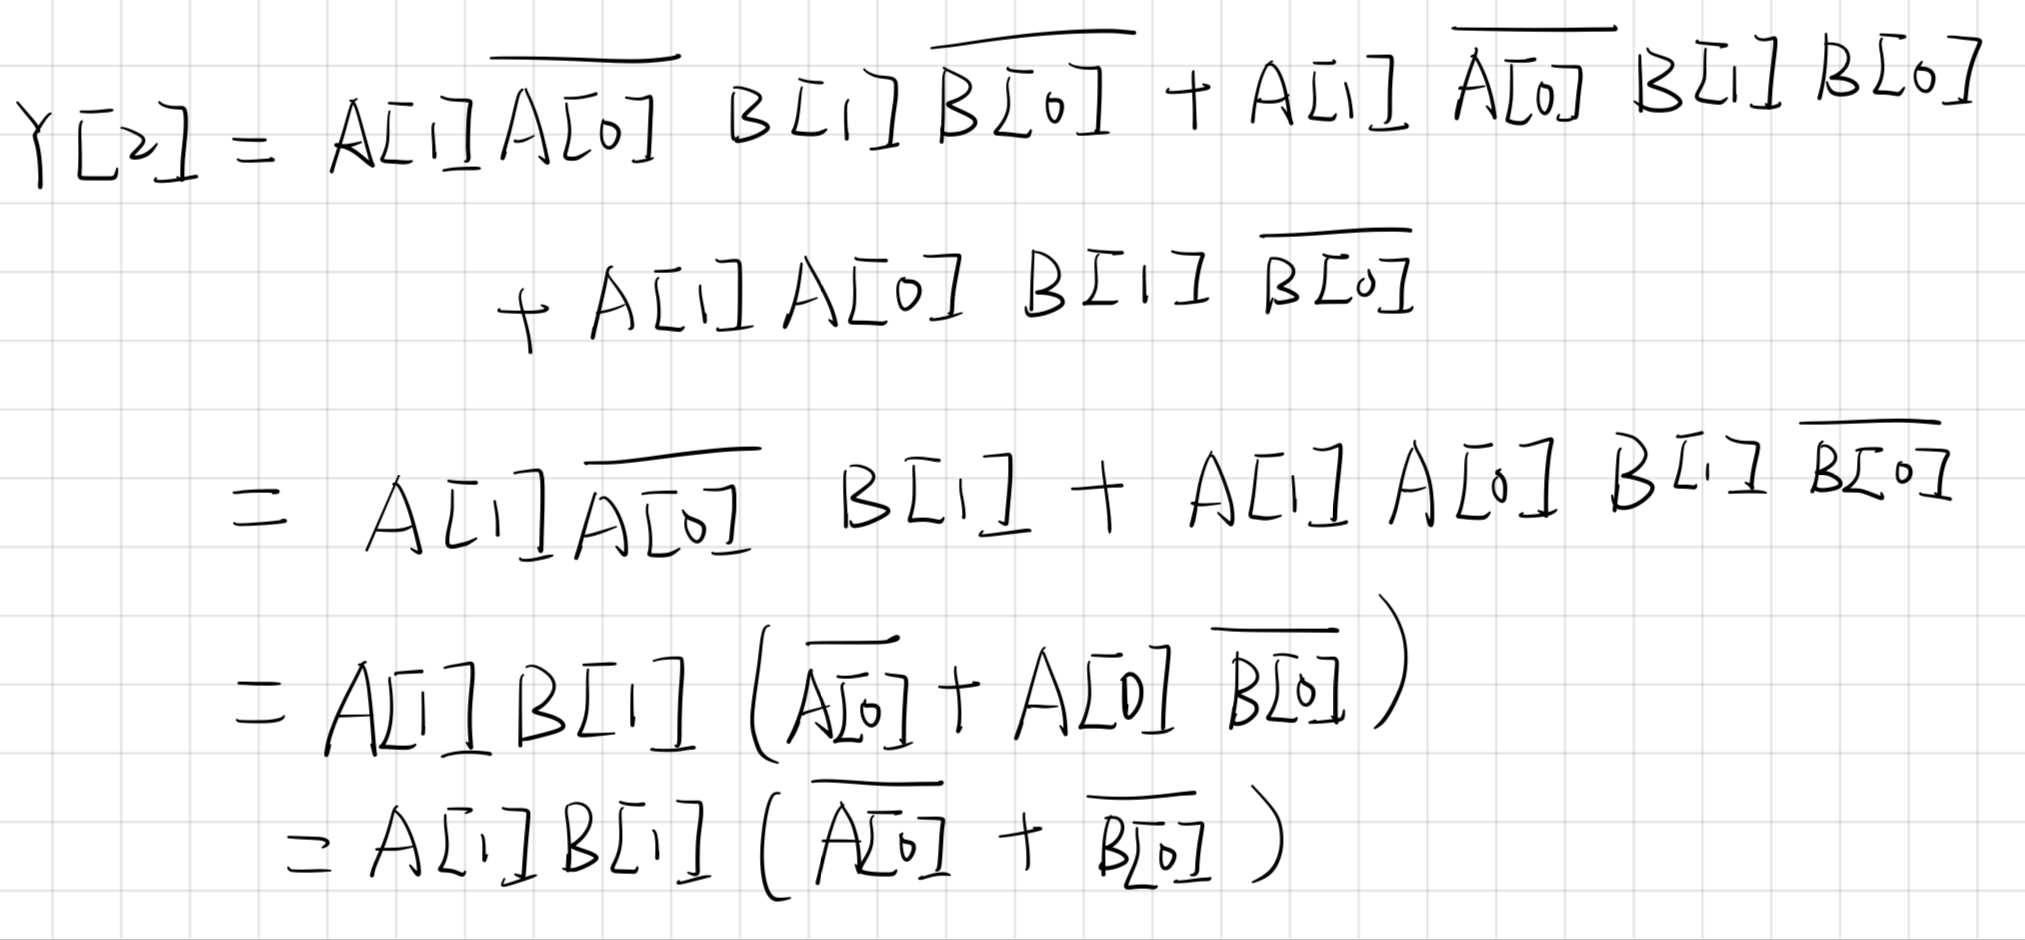 Y[2] = A[1] A̅[̅0̅]̅ B[1] B̅[̅0̅]̅ + A[1] A̅[̅0̅]̅ B[1] B[0]
+ A[1] A[0] B[1] B̅[̅0̅]̅
= A[1] A̅[̅0̅]̅ B[1] + A[1] A[0] B[1] B̅[̅0̅]̅
= A[1] B[1] (A̅[̅0̅]̅ + A[0] B̅[̅0̅]̅)
= A[1] B[1] (A̅[̅0̅]̅ + B̅[̅0̅]̅)